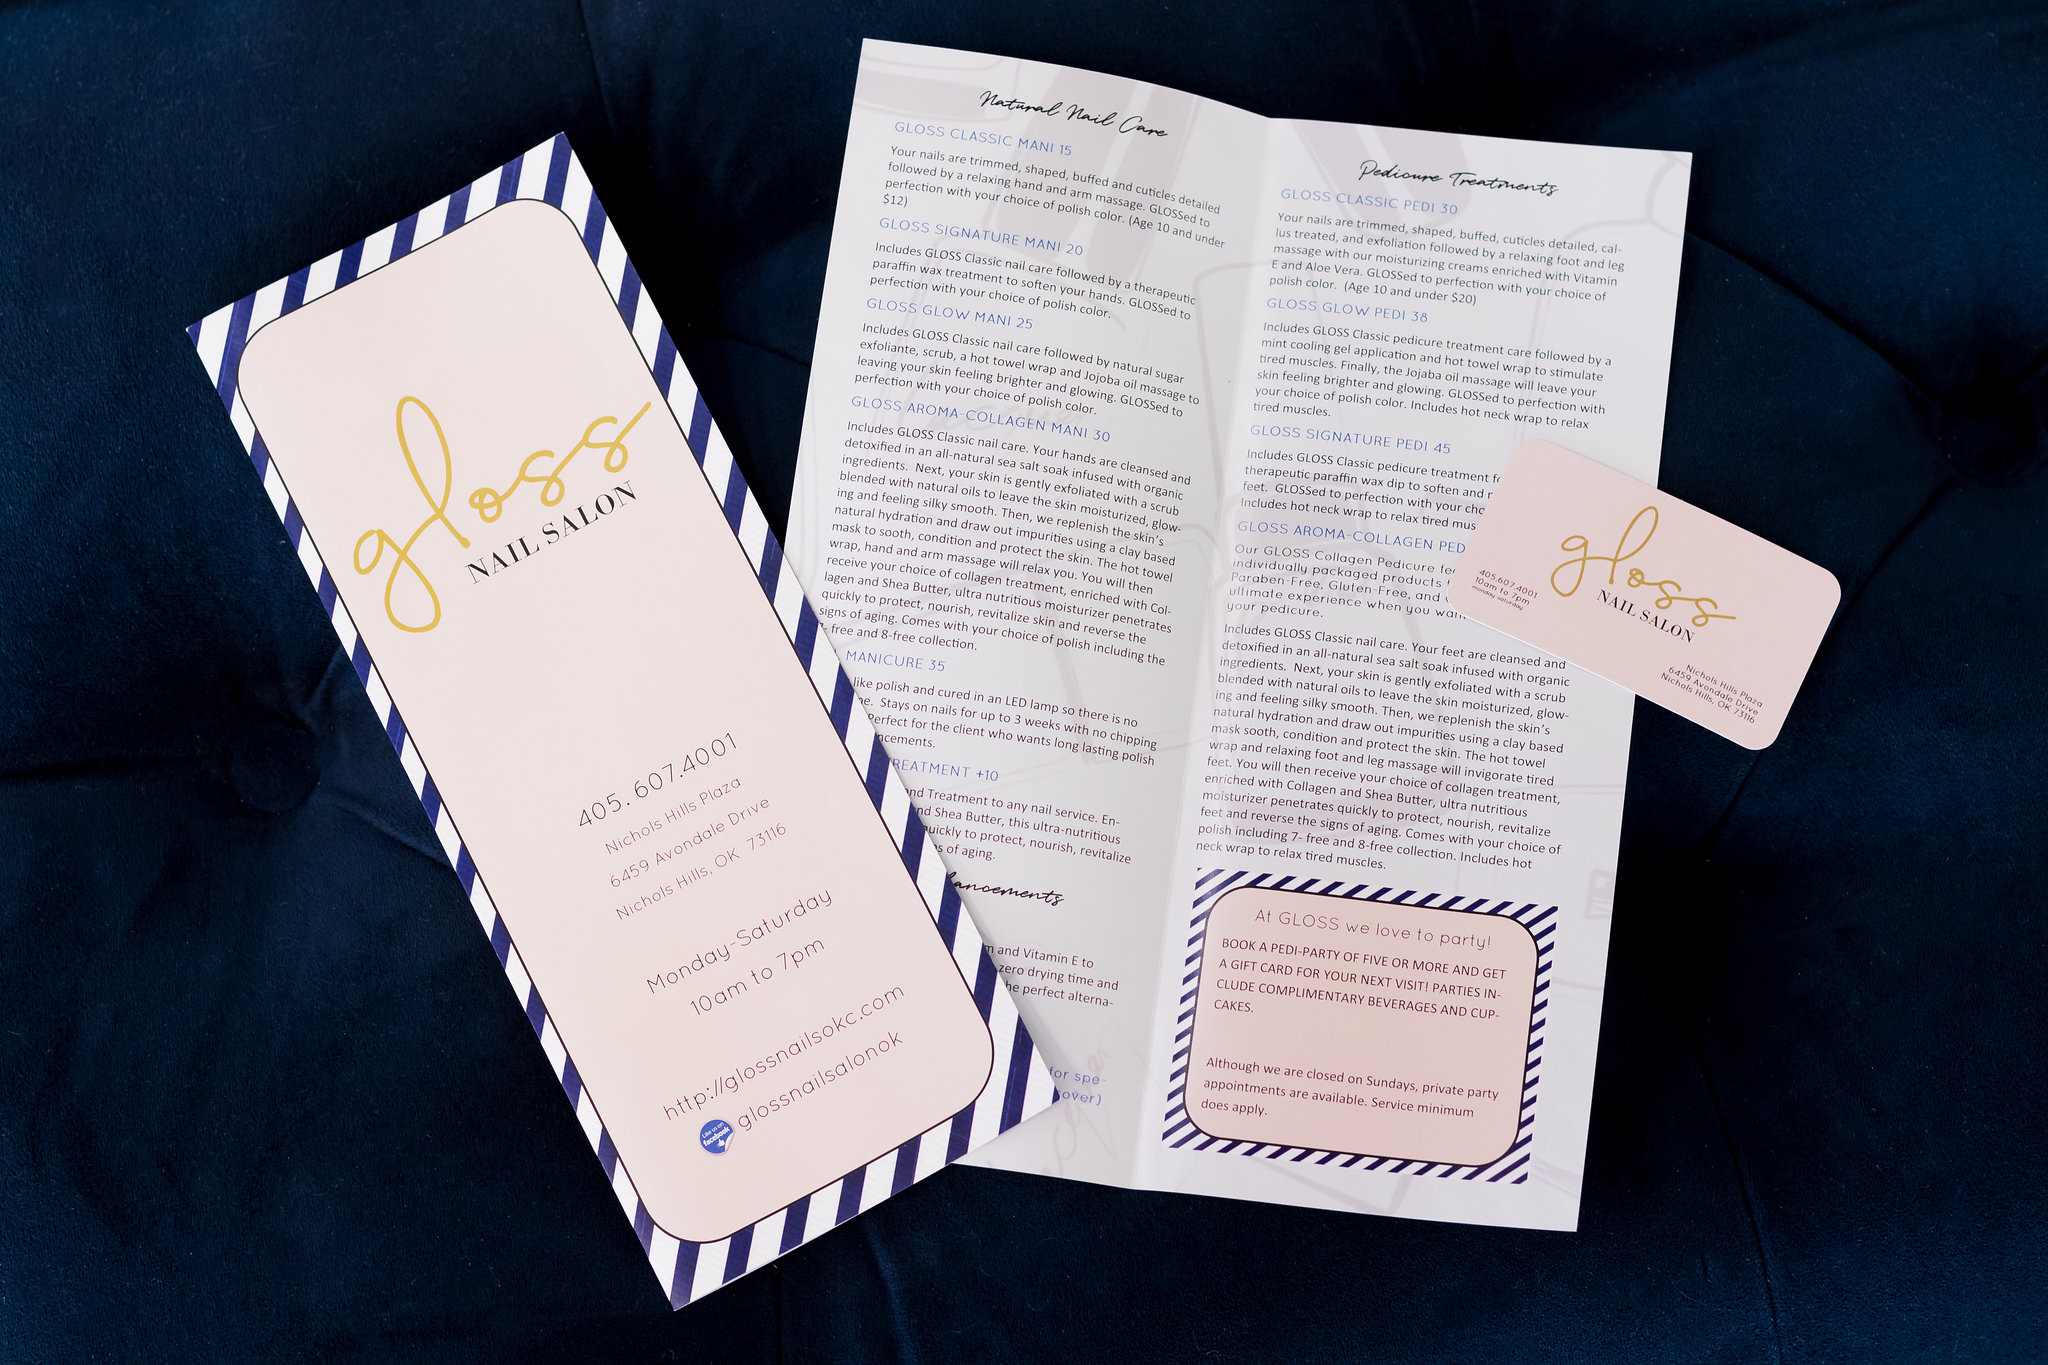 gloss
NAIL SALON
405.607.4001
Nichols Hills Plaza
6459 Avondale Drive
Nichols Hills, OK 73116
Monday-Saturday
10am to 7pm
http://glossnailsokc.com
Like us on
facebook
glossnailsalonok
Natural Nail Care
GLOSS CLASSIC MANI 15
Your nails are trimmed, shaped, buffed and cuticles detailed
followed by a relaxing hand and arm massage. GLOSSed to
perfection with your choice of polish color. (Age 10 and under
$12)
GLOSS SIGNATURE MANI 20
Includes GLOSS Classic nail care followed by a therapeutic
paraffin wax treatment to soften your hands. GLOSSed to
perfection with your choice of polish color.
GLOSS GLOW MANI 25
Includes GLOSS Classic nail care followed by natural sugar
exfoliante, scrub, a hot towel wrap and Jojoba oil massage to
leaving your skin feeling brighter and glowing. GLOSSed to
perfection with your choice of polish color.
GLOSS AROMA-COLLAGEN MANI 30
Includes GLOSS Classic nail care. Your hands are cleansed and
detoxified in an all-natural sea salt soak infused with organic
ingredients. Next, your skin is gently exfoliated with a scrub
blended with natural oils to leave the skin moisturized, glow-
ing and feeling silky smooth. Then, we replenish the skin's
natural hydration and draw out impurities using a clay based
mask to sooth, condition and protect the skin. The hot towel
wrap, hand and arm massage will relax you. You will then
receive your choice of collagen treatment, enriched with Col-
lagen and Shea Butter, ultra nutritious moisturizer penetrates
quickly to protect, nourish, revitalize skin and reverse the
signs of aging. Comes with your choice of polish including the
7- free and 8-free collection.
MANICURE 35
like polish and cured in an LED lamp so there is no
Stays on nails for up to 3 weeks with no chipping
Perfect for the client who wants long lasting polish
ncements.
REATMENT +10
nd Treatment to any nail service. En-
nd Shea Butter, this ultra-nutritious
uickly to protect, nourish, revitalize
s of aging.
hancements
m and Vitamin E to
zero drying time and
he perfect alterna-
for spe-
over)
Pedicure Treatments
GLOSS CLASSIC PEDI 30
Your nails are trimmed, shaped, buffed, cuticles detailed, cal-
lus treated, and exfoliation followed by a relaxing foot and leg
massage with our moisturizing creams enriched with Vitamin
E and Aloe Vera. GLOSSed to perfection with your choice of
polish color. (Age 10 and under $20)
GLOSS GLOW PEDI 38
Includes GLOSS Classic pedicure treatment care followed by a
mint cooling gel application and hot towel wrap to stimulate
tired muscles. Finally, the Jojaba oil massage will leave your
skin feeling brighter and glowing. GLOSSed to perfection with
your choice of polish color. Includes hot neck wrap to relax
tired muscles.
GLOSS SIGNATURE PEDI 45
Includes GLOSS Classic pedicure treatment fo
therapeutic paraffin wax dip to soften and r
feet. GLOSSed to perfection with your cho
Includes hot neck wrap to relax tired mus
GLOSS AROMA-COLLAGEN PED
Our GLOSS Collagen Pedicure fe
individually packaged products
Paraben-Free, Gluten-Free, and
ultimate experience when you wan
your pedicure.
Includes GLOSS Classic nail care. Your feet are cleansed and
detoxified in an all-natural sea salt soak infused with organic
ingredients. Next, your skin is gently exfoliated with a scrub
blended with natural oils to leave the skin moisturized, glow-
ing and feeling silky smooth. Then, we replenish the skin's
natural hydration and draw out impurities using a clay based
mask sooth, condition and protect the skin. The hot towel
wrap and relaxing foot and leg massage will invigorate tired
feet. You will then receive your choice of collagen treatment,
enriched with Collagen and Shea Butter, ultra nutritious
moisturizer penetrates quickly to protect, nourish, revitalize
feet and reverse the signs of aging. Comes with your choice of
polish including 7- free and 8-free collection. Includes hot
neck wrap to relax tired muscles.
At GLOSS we love to party!
BOOK A PEDI-PARTY OF FIVE OR MORE AND GET
A GIFT CARD FOR YOUR NEXT VISIT! PARTIES IN-
CLUDE COMPLIMENTARY BEVERAGES AND CUP-
CAKES.
Although we are closed on Sundays, private party
appointments are available. Service minimum
does apply.
gloss
NAIL SALON
405.607.4001
10am to 7pm
monday-saturday
Nichols Hills Plaza
6459 Avondale Drive
Nichols Hills, OK 73116